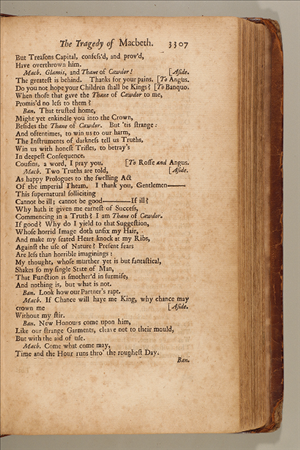 The Tragedy of Macbeth. 3307
But Treasons Capital, confess'd, and prov'd,
Have overthrown him.
Mach. Glamis, and Thane of Cawdor! [Aside.
The greatest is behind. Thanks for your pains. [To Angus.
Do you not hope your Children shall be Kings? [To Banquo.
When those that gave the Thane of Cawdor to me,
Promis'd no less to them?
Ban. That trusted home,
Might yet enkindle you into the Crown,
Besides the Thane of Cawdor. But 'tis strange:
And oftentimes, to win us to our harm,
The Instruments of darkness tell us Truths,
Win us with honest Trifles, to betray's
In deepest Consequence.
Cousins, a word, I pray you. [To Rosse and Angus.
Mach. Two Truths are told, [Aside.
As happy Prologues to the swelling Act
Of the imperial Theam. I thank you, Gentlemen——
This supernatural solliciting
Cannot be ill; cannot be good———If ill?
Why hath it given me earnest of Success,
Commencing in a Truth? I am Thane of Cawdor.
If good? Why do I yield to that Suggestion,
Whose horrid Image doth unfix my Hair,
And make my seated Heart knock at my Ribs,
Against the use of Nature? Present fears
Are less than horrible imaginings:
My thought, whose murther yet is but fantastical,
Shakes so my single State of Man,
That Function is smother'd in surmise,
And nothing is, but what is not.
Ban. Look how our Partner's rapt.
Mach. If Chance will have me King, why chance may
crown me [Aside.
Without my stir.
Ban. New Honours come upon him,
Like our strange Garments, cleave not to their mould,
But with the aid of use.
Mach. Come what come may,
Time and the Hour runs thro' the roughest Day.
Ban.